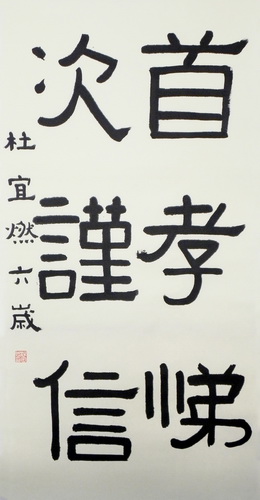 首孝悌
次謹信
杜宜燃六歲